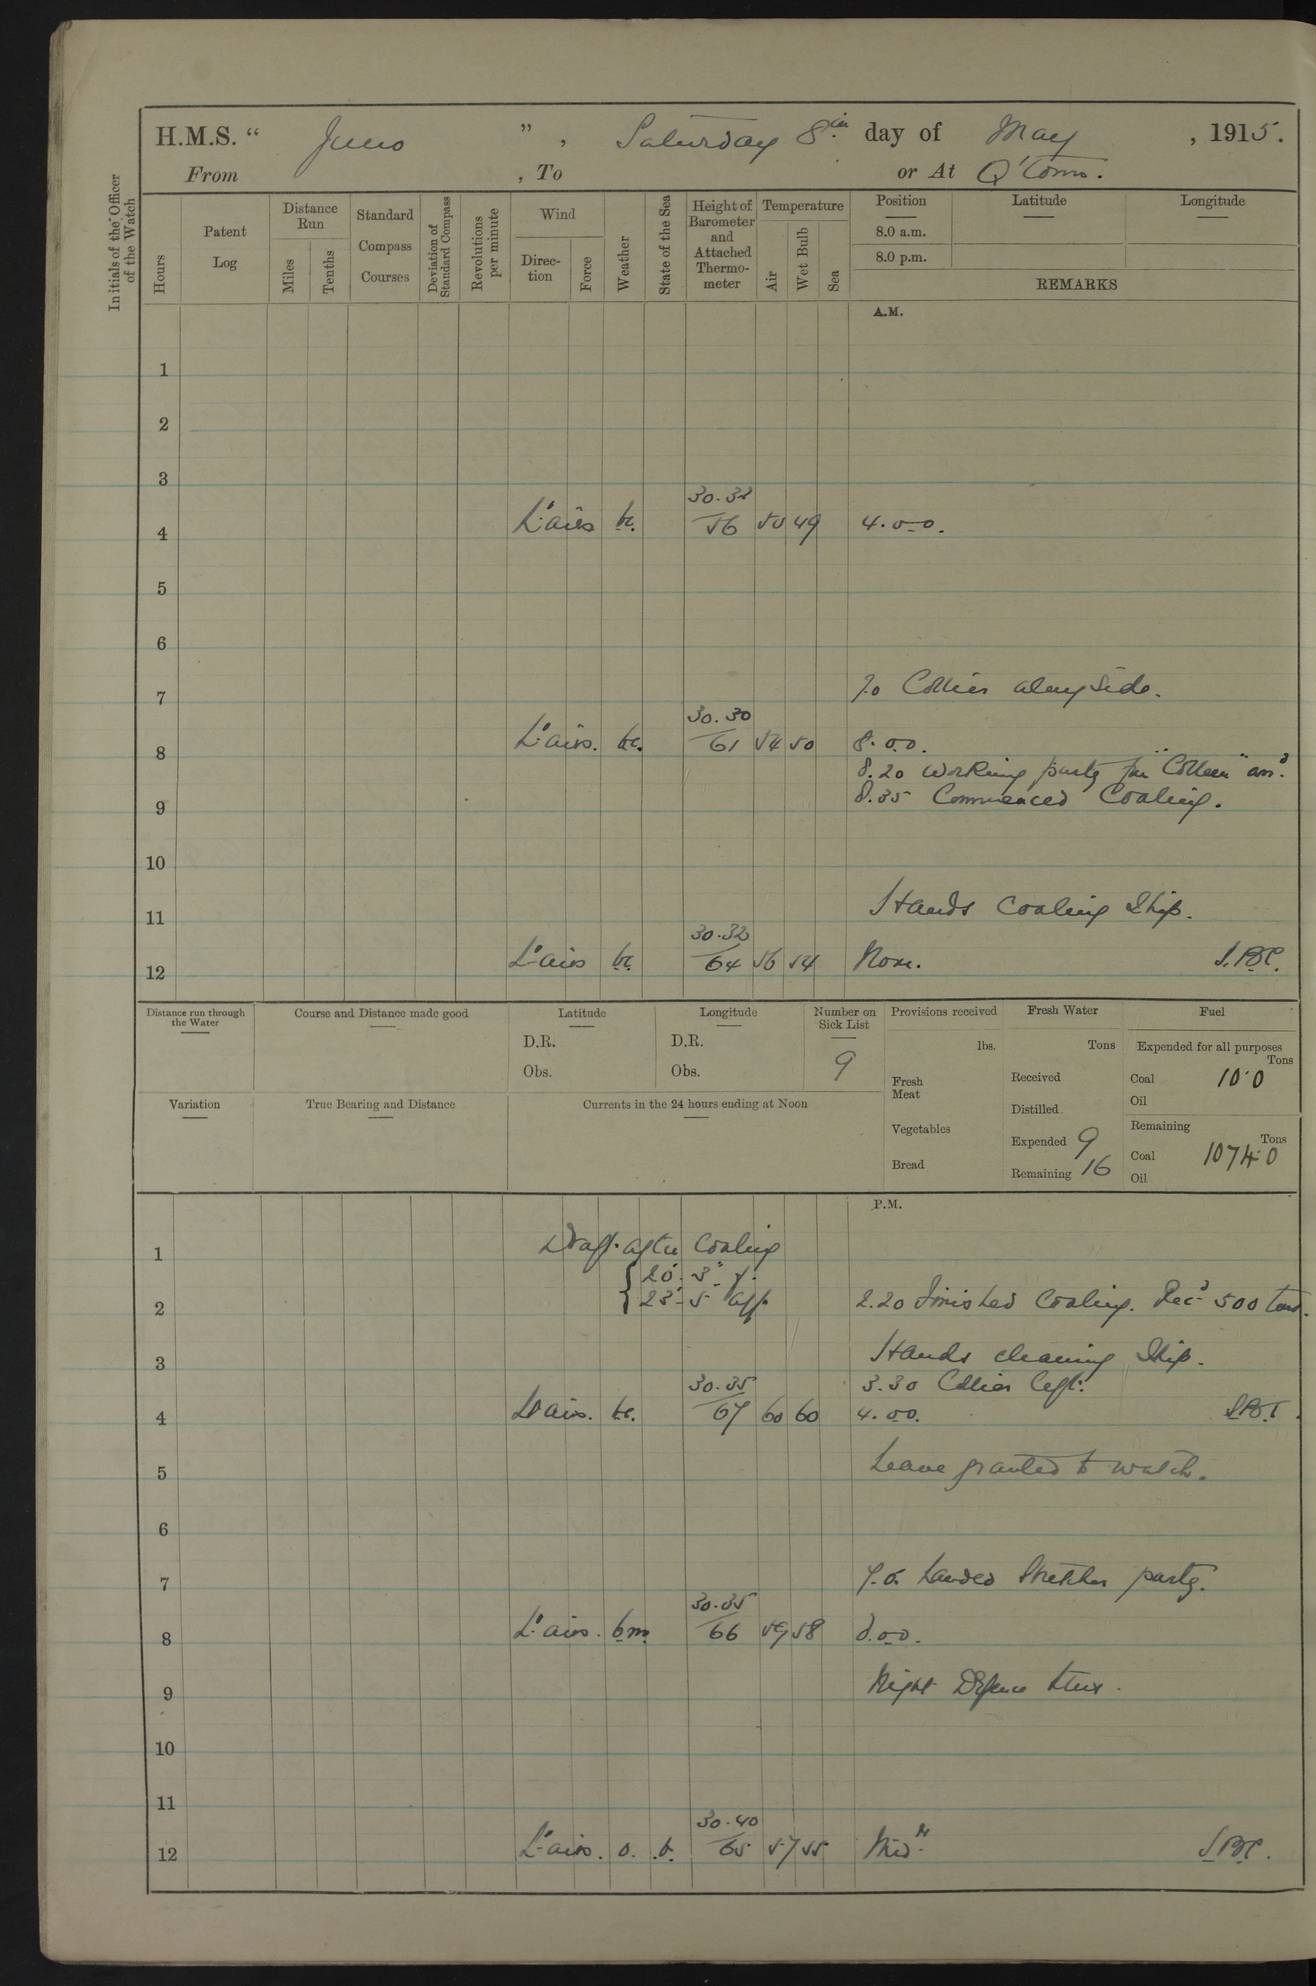 H.M.S. “ Juno ” , Saturday 8th day of May , 1915.
From , To or At Q'town.
Initials of the Officer of the Watch
Hours
Patent Log
Distance Run
Miles
Tenths
Standard Compass Courses
Deviation of Standard Compass
Revolutions per minute
Wind
Direction
Force
Weather
State of the Sea
Height of Barometer and Attached Thermometer
Temperature
Air
Wet Bulb
Sea
Position Latitude Longitude
8.0 a.m.
8.0 p.m.
REMARKS
A.M.
1
2
3
4 Lt airs bc. 56 50 49 4.00.
5
6
7 7.0 Collier alongside.
30.30
8 Lt airs. bc. 61 54 50 8.00.
8.20 Working party for "Colleen" arrd.
9 8.35 Commenced Coaling.
10
11 Hands coaling Ship.
12 Lt airs bc. 64 56 54 Noon.
Distance run through the Water
Course and Distance made good
Latitude
D.R.
Obs.
Longitude
D.R.
Obs.
Number on Sick List
9
Provisions received
lbs.
Fresh Meat
Vegetables
Bread
Fresh Water
Tons
Received
Distilled
Expended 9
Remaining 16
Fuel
Expended for all purposes
Tons
Coal 10.0
Oil
Remaining
Tons
Coal 1074.0
Oil
Variation
True Bearing and Distance
Currents in the 24 hours ending at Noon
P.M.
1 Draft after Coaling
20'. 3" f.
2 23'- 5 aft 2.20 Finished Coaling. Recd 500 tons.
3 Hands cleaning Ship.
30.35 3.30 Collier left.
4 Lt airs. bc. 67 60 60 4.00.
5 Leave granted to watch.
6
7 7.0. Landed Stretcher party.
30.35
8 Lt airs. bm. 66 59 58 8.00.
9 Night Defence Stns.
10
11
30.40
12 Lt airs. 0. b. 65 57 55 Midt